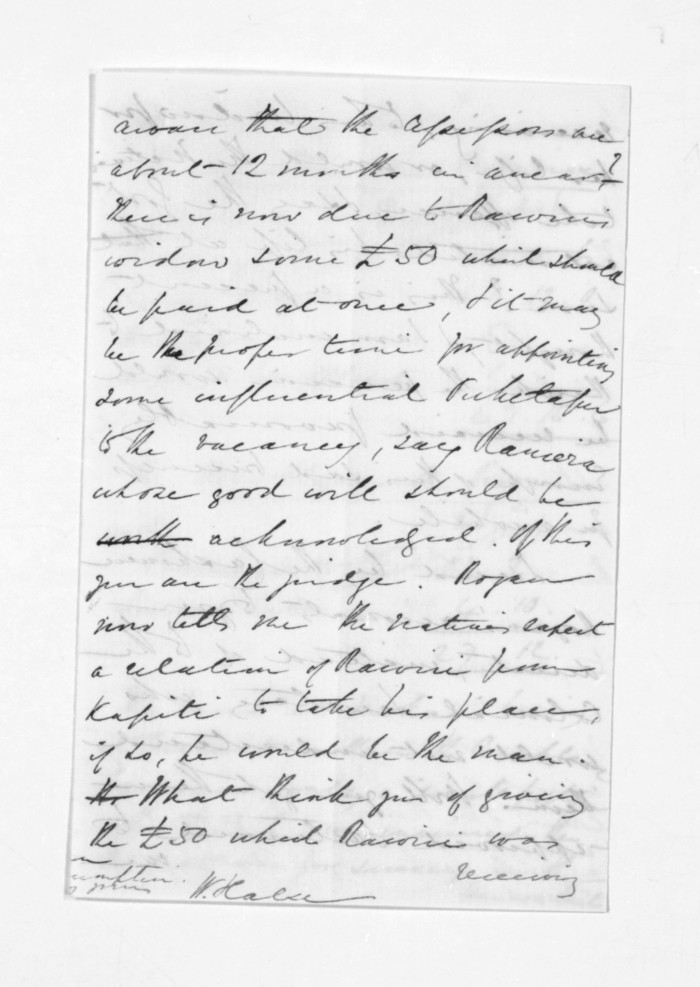 aware that the assessors are
about 12 months in arear?
there is now due to Rawiri's
widow some £50 which should
be paid at once, & it may
be the proper time for appointing
some influential Puketapu
to the vacancy, say Raniera
whose good will should be
acknowledged. Of this
you are the judge. Rogan
now tells me the natives expect
a relation of Rawiri from
Kapiti to take his place,
if so, he would be the man.
What think you of giving
the £50 which Rawiri was
receiving
W. Halse